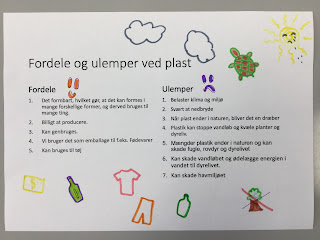 Fordele og ulemper ved plast
Fordele
1. Det formbart, hvilket gør, at det kan formes i
mange forskellige former, og derved bruges til
mange ting
2. Billigt at producere.
3. Kan genbruges.
4. Vi bruger det som emballage til f.eks. Fødevarer
5. Kan bruges til tøj
Ulemper
1. Belaster klima og miljø
2. Svært at nedbryde
3. Når plast ender i naturen, bliver det en dræber
4. Plastik kan stoppe vandløb og kvæle planter og
dyreliv.
5. Mængder plastik ender i naturen og kan
skade fugle, rovdyr og dyrelivet
6. Kan skade vandløbet og ødelægge energien i
vandet til dyrelivet.
7. Kan skade havmiljøet